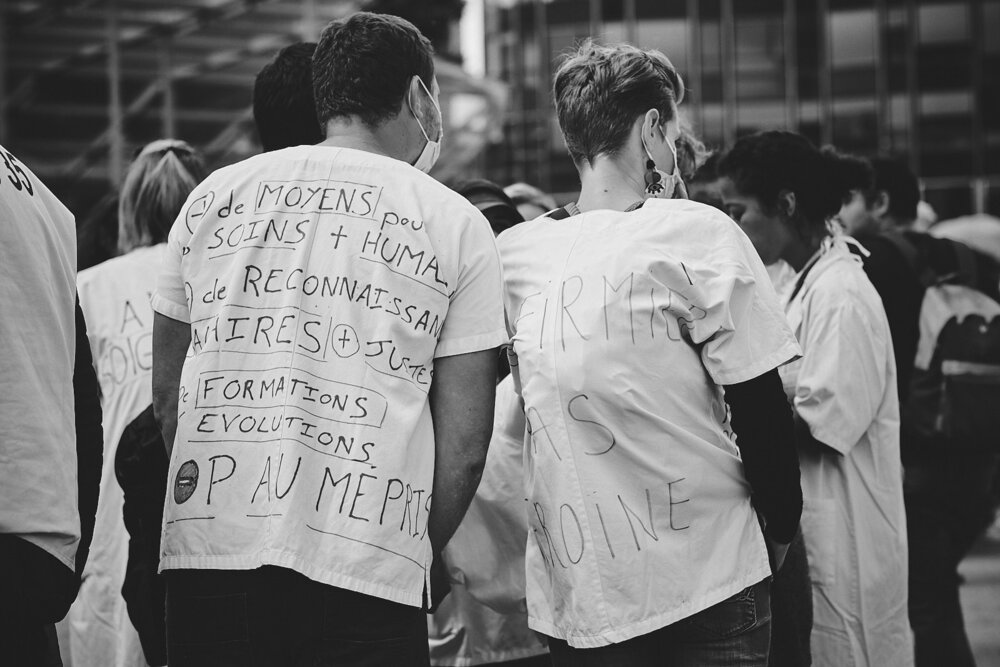 35
A
SOIG
+ de MOYENS pou
SOINS + HUMA
de RECONNAISSAN
AIRES + JUSTE
FORMATIONS
EVOLUTIONS
OP AU MÉPRIS
FIRMI
AS
ROÏNE